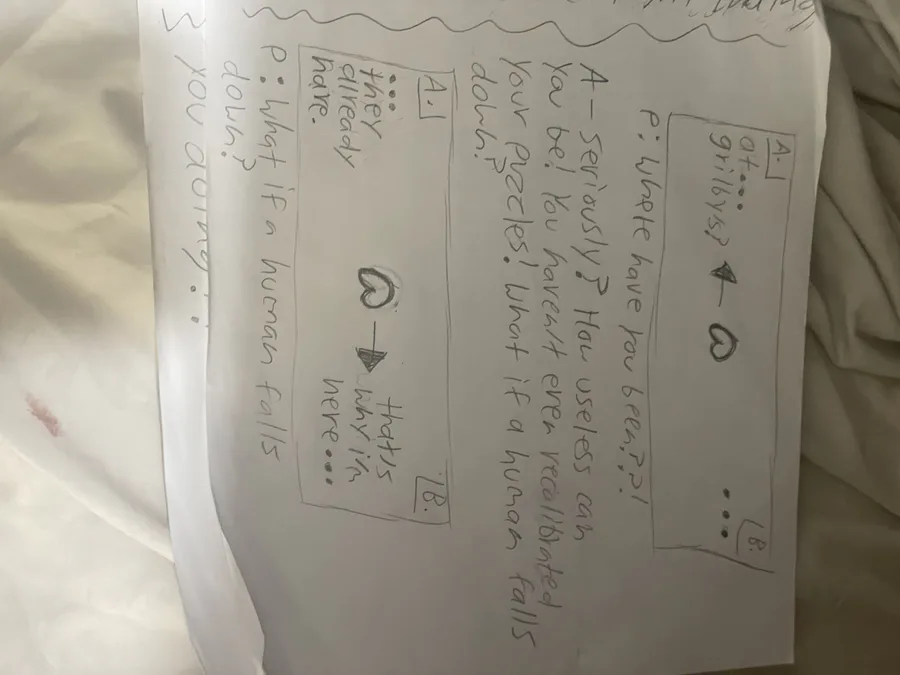 A.
B.
at...
grilbys?
...
P: Where have you been??!
A - seriously? How useless can
you be! You havent even recalibrated
your puzzles! What if a human falls
down?
A.
B.
...
they
already
have.
thats
why im
here...
P: What if a human falls
down?
you doing...